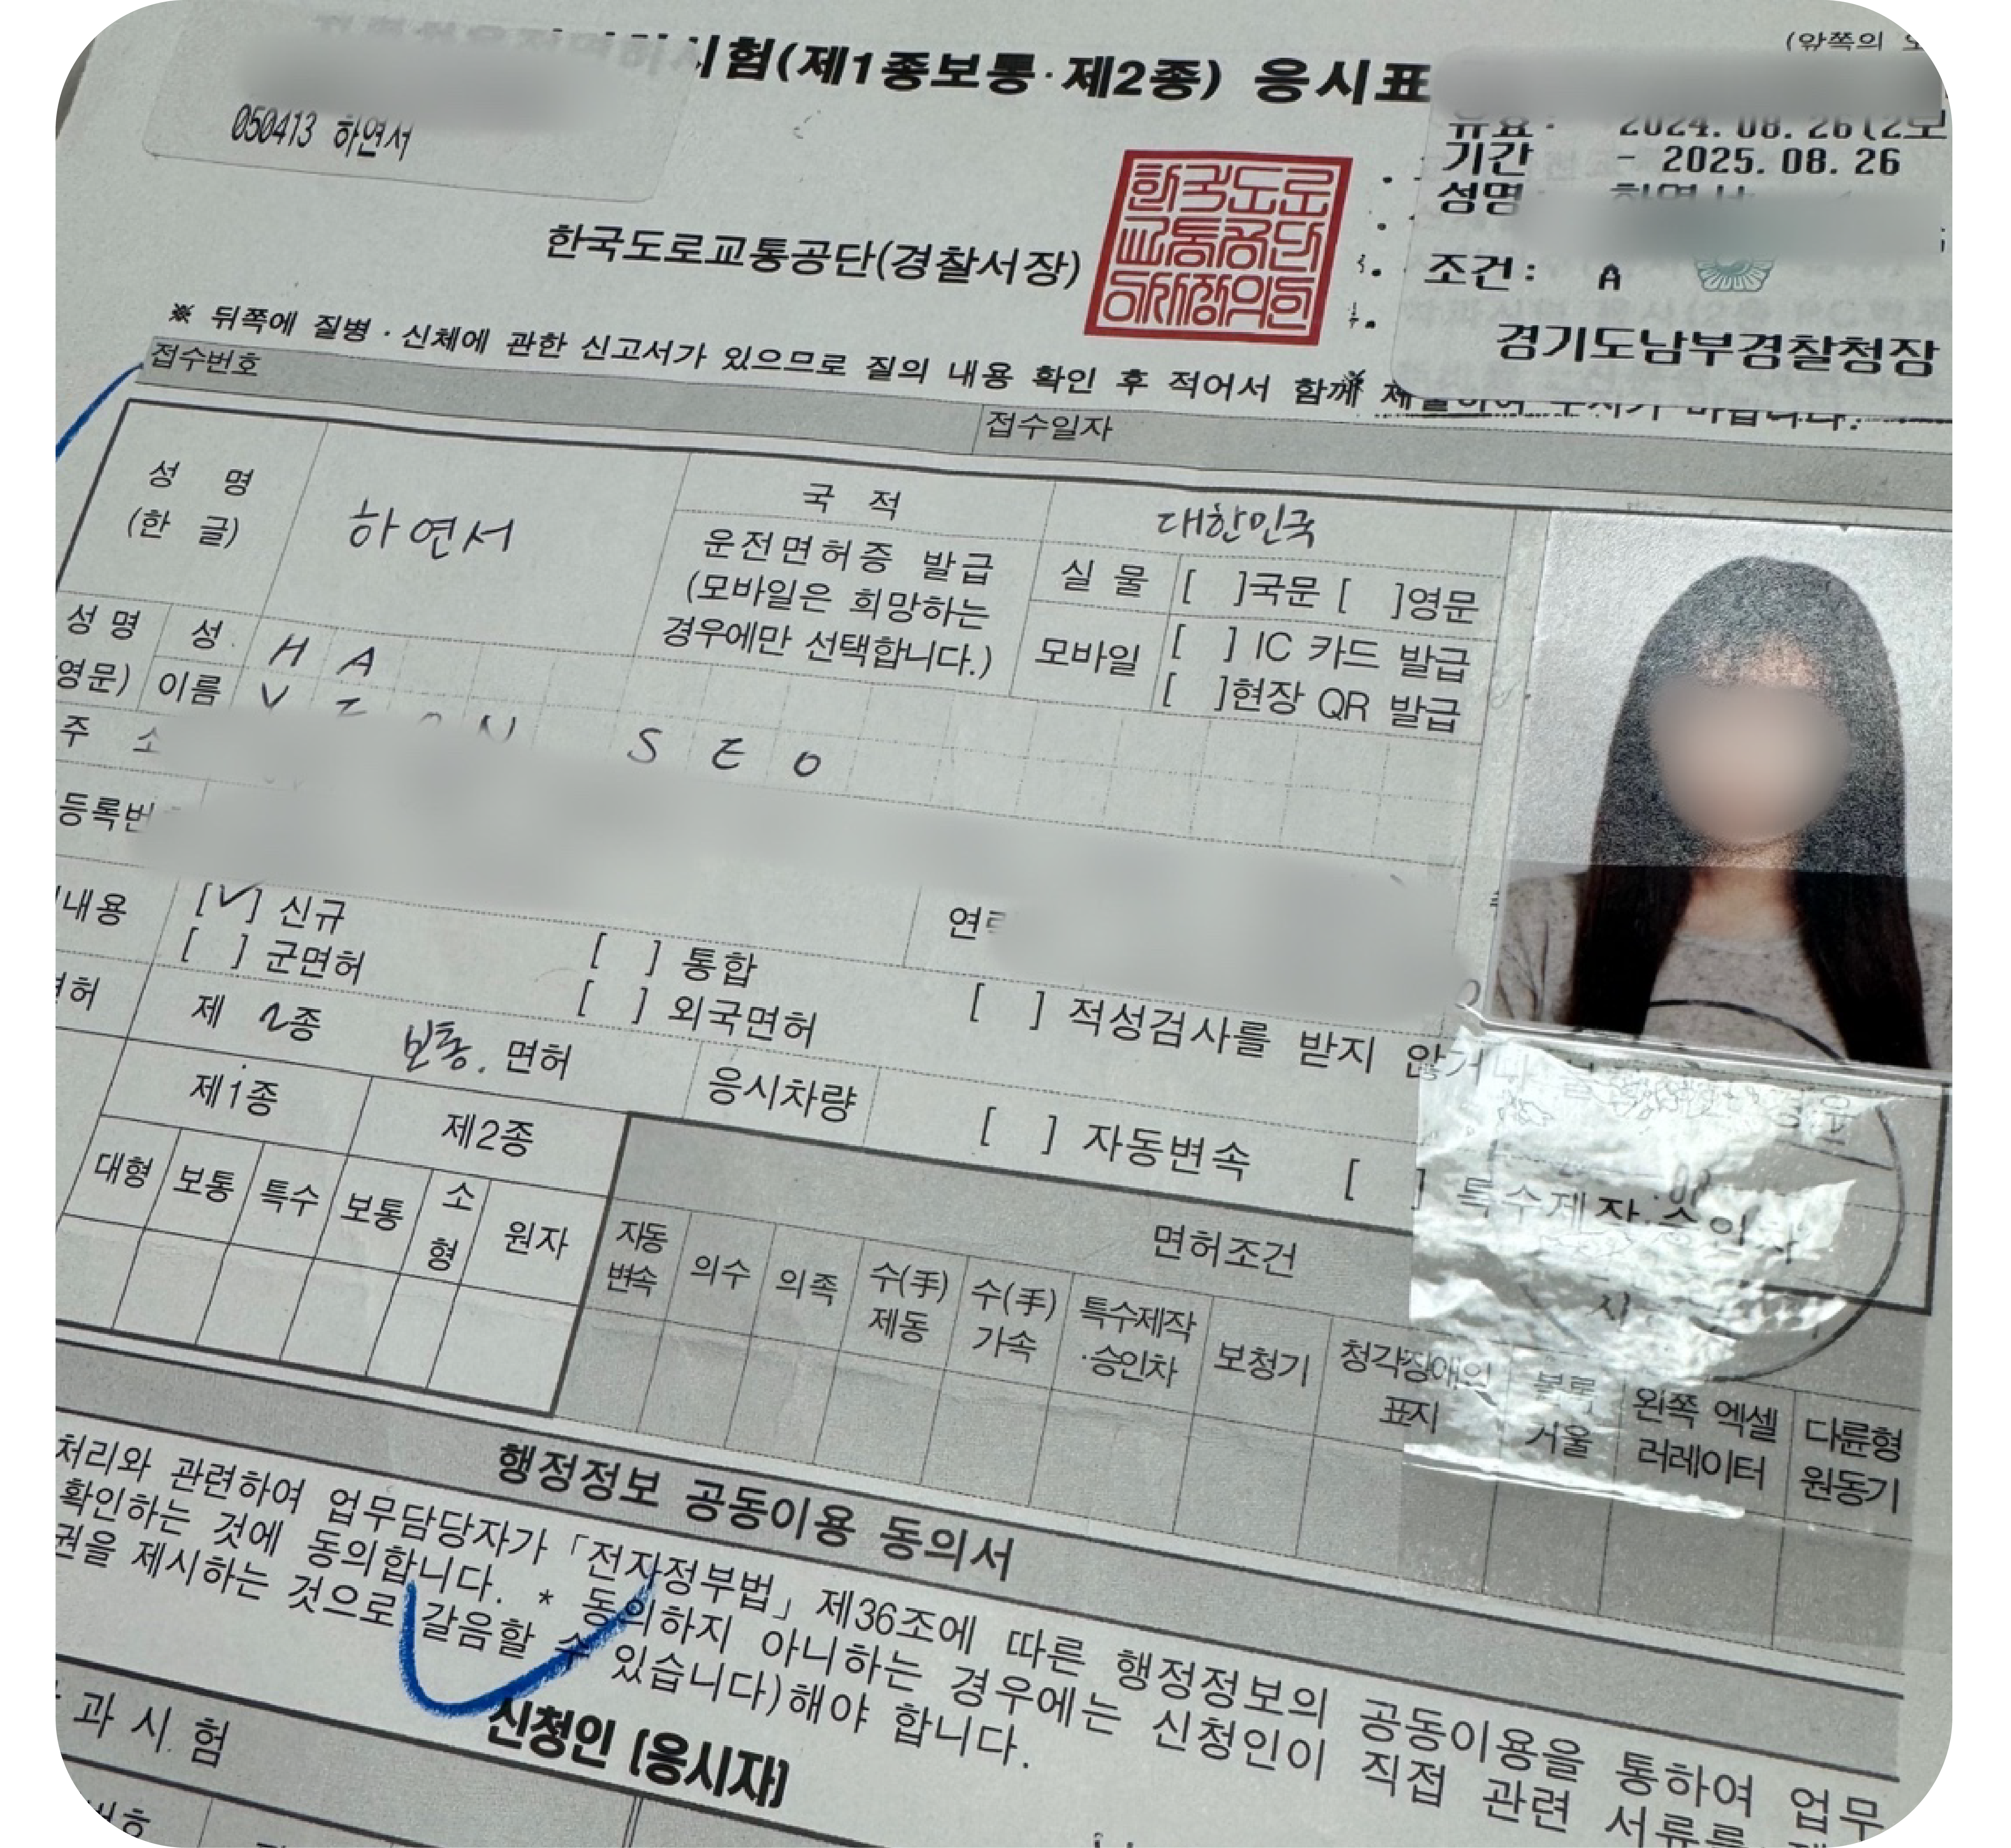 시험(제1종보통·제2종) 응시표
(앞쪽의
050413 하연서
유효· 2024. 08. 26(2보
기간 - 2025. 08. 26
성명· 하연서
조건: A
경기도남부경찰청장
한국도로교통공단(경찰서장)
한국도로
교통공단
이사장의인
※ 뒤쪽에 질병·신체에 관한 신고서가 있으므로 질의 내용 확인 후 적어서 함께 제출하여 주시기 바랍니다.
접수번호
접수일자
성 명
(한 글)
하연서
국 적
대한민국
운전면허증 발급
(모바일은 희망하는
경우에만 선택합니다.)
실 물 [ ]국문 [ ]영문
모바일 [ ] IC 카드 발급
[ ]현장 QR 발급
성 명
영문)
성 H A
이름 Y E O N S E O
주 소
등록번
내용
[✓] 신규
[ ] 군면허
[ ] 통합
[ ] 외국면허
[ ] 적성검사를 받지 않거나
허
제 2종 보통. 면허
응시차량
[ ] 자동변속
[ ] 특수제작·승인차
제1종
제2종
대형 보통 특수 보통 소형 원자
면허조건
자동
변속
의수
의족
수(手)
제동
수(手)
가속
특수제작
·승인차
보청기
청각장애인
표지
볼록
거울
왼쪽 엑셀
러레이터
다륜형
원동기
행정정보 공동이용 동의서
처리와 관련하여 업무담당자가 「전자정부법」 제36조에 따른 행정정보의 공동이용을 통하여 업무
확인하는 것에 동의합니다. * 동의하지 아니하는 경우에는 신청인이 직접 관련 서류를
권을 제시하는 것으로 갈음할 수 있습니다)해야 합니다.
신청인 (응시자)
과 시 험